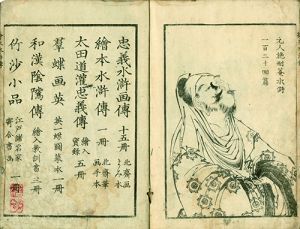 元人施耐菴水滸
一百二十回篇
忠義水滸画傳 十五冊 北斎画
繪本水滸傳 一冊 北斎筆 画手本
太田道灌忠義傳 繪入 實録 五冊
羣蝶画英 英一蝶画 一冊
和漢陰隲傳 繪入教訓書 三冊
竹沙小品 江戸諸名家 一冊